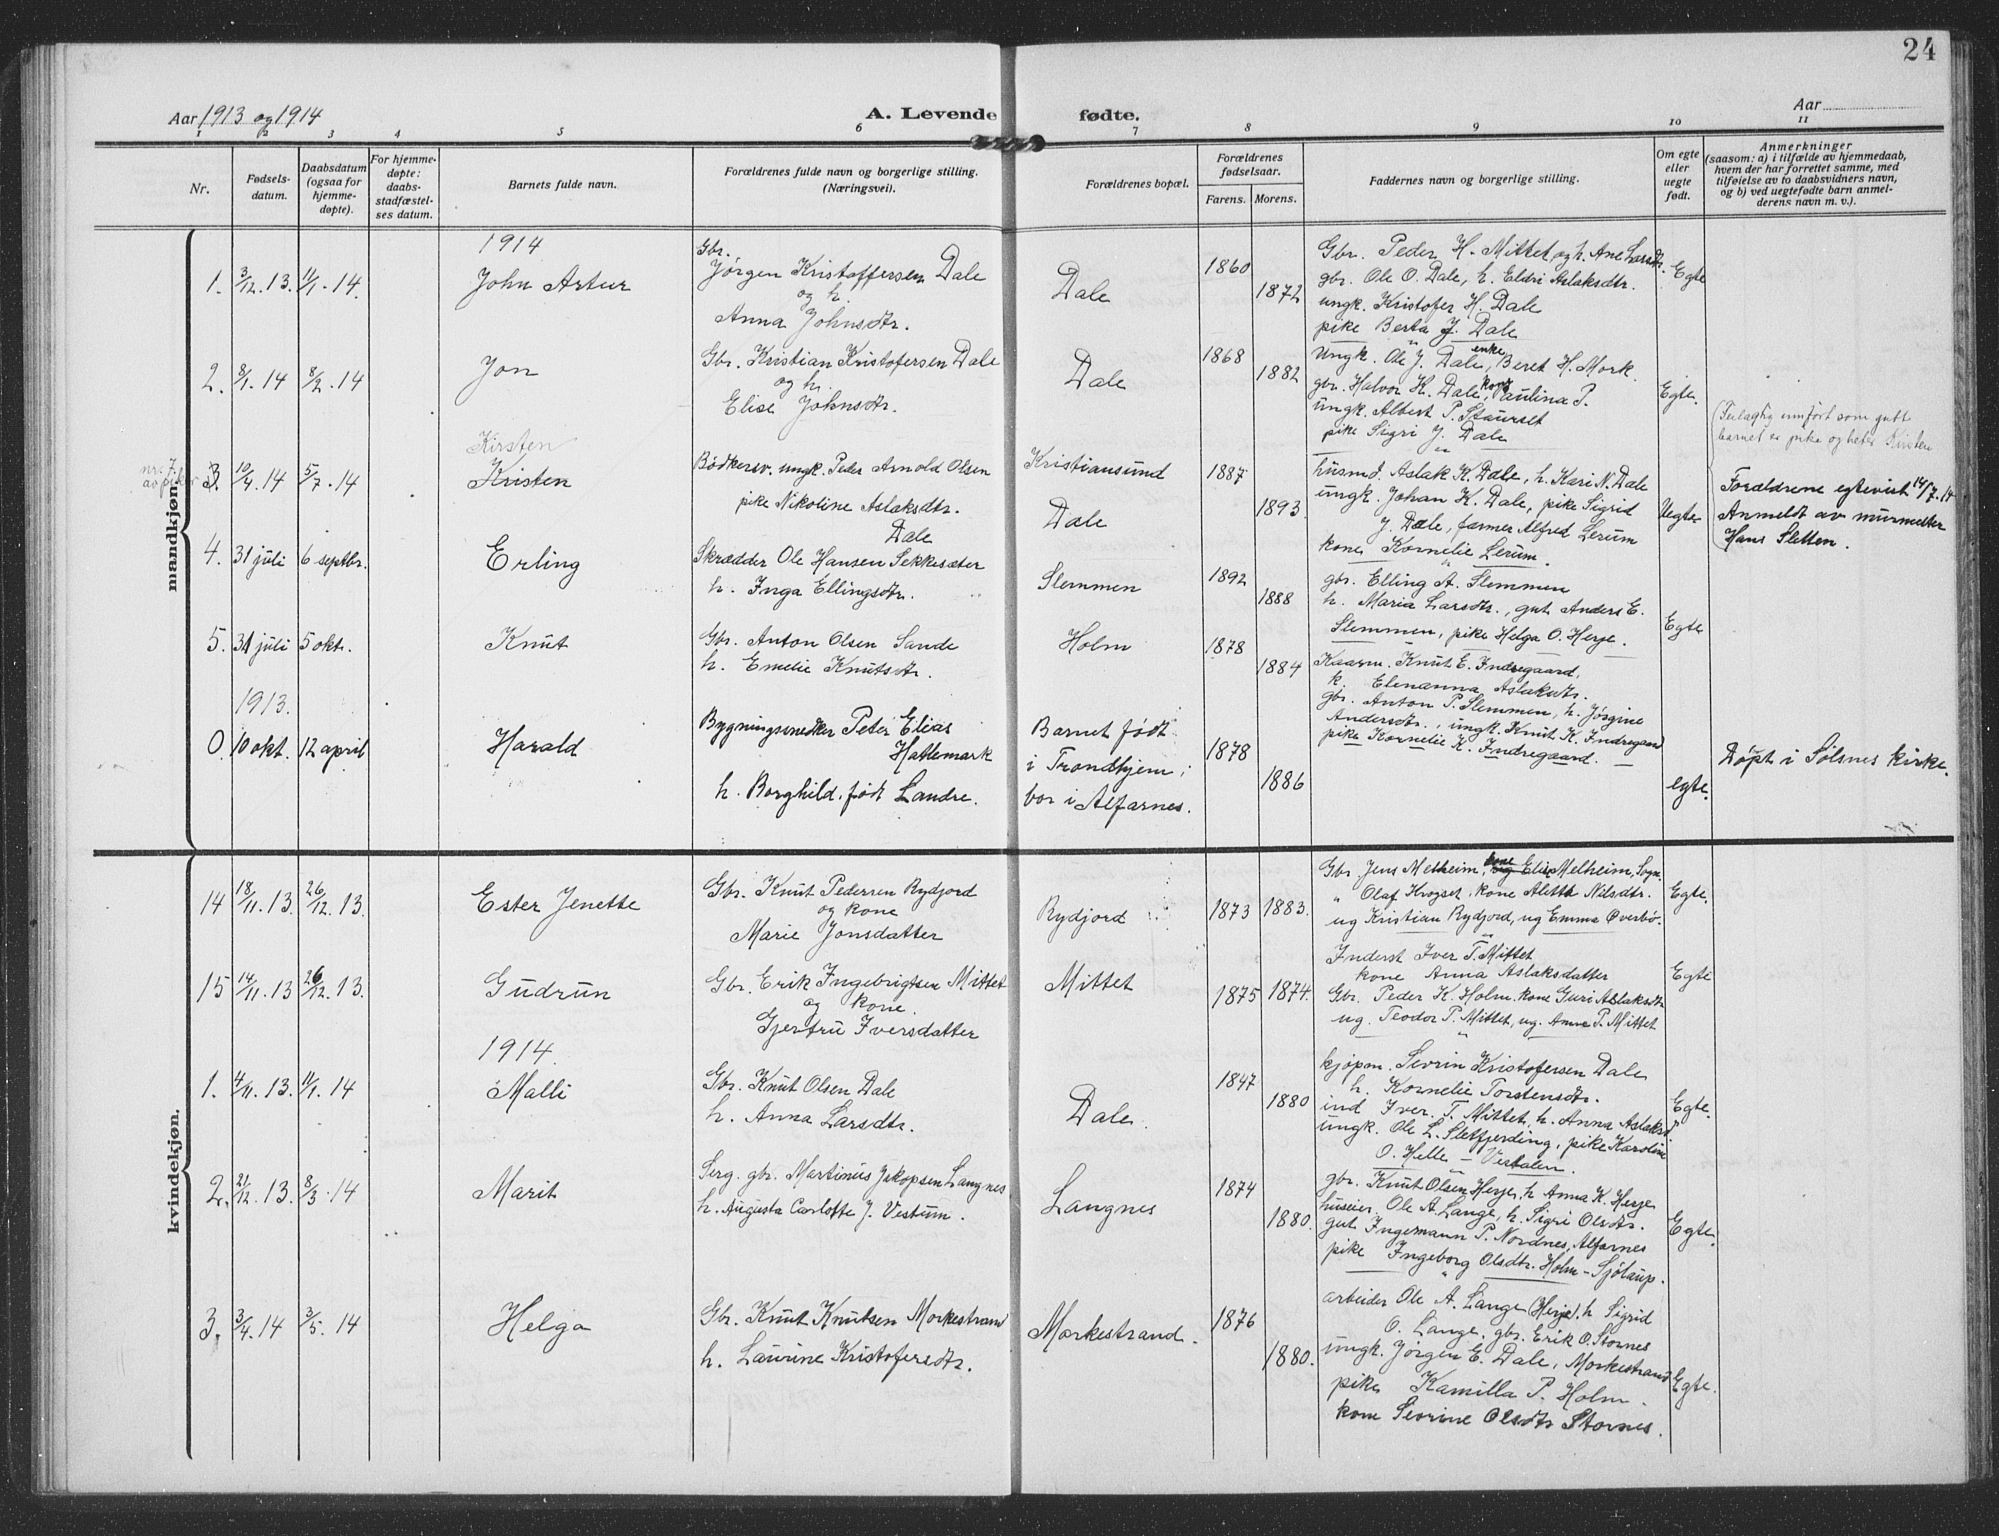 24
Aar 1913 og 1914
A. Levende fødte.
Aar
1 2 3 4 5 6 7 8 9 10 11
Nr.
Fødsels-
datum.
Daabsdatum
(ogsaa for
hjemme-
døpte).
For hjemme-
døpte:
daabs-
stadfæstel-
ses datum.
Barnets fulde navn.
Forældrenes fulde navn og borgerlige stilling.
(Næringsvei).
Forældrenes bopæl.
Forældrenes
fødselsaar.
Farens. Morens.
Faddernes navn og borgerlige stilling.
Om egte
eller
uegte
født.
Anmerkninger
(saasom: a) i tilfælde av hjemmedaab,
hvem der har forrettet samme, med
tilføielse av to daabsvidners navn,
og b) ved uegtefødte barn anmel-
derens navn m. v.).
mandkjøn.
1914
1. 3/12. 13. 11/1. 14.
John Artur
Gbr.
Jørgen Kristoffersen Dale
og h.
Anna Johnsdtr.
Dale
1860
1872
Gbr. Peder H. Mittet, og h. Ane Larsdtr.
gbr. Ole O. Dale, h. Eldri Aslaksdtr.
ungk. Kristofer H. Dale
pike Berta J. Dale
Egte
2. 8/1. 14 8/2. 14
Jon
Gbr. Kristian Kristofersen Dale
og h.
Elise Johnsdtr.
Dale
1868
1882
Ungk. Ole J. Dale, enke Beret H. Mork.
gbr. Halvor K. Dale, kone Paulina P.
ungk. Albert P. Staurset
pike Sigri J. Dale
Egte.
nr. 7.
av piker
3. 10/4. 14 5/7. 14
Kirsten
Kristen
Bødkersv. ungk. Peder Arnold Olsen
pike Nikoline Aslaksdtr.
Dale
Kristiansund
Dale
1887
1893
husmd. Aslak K. Dale, h. Kari N. Dale
ungk. Johan K. Dale, pike Sigrid
J. Dale, farmer Alfred Lerum
kone Kornelie Lerum.
Uegte
(Feilagtig innført som gutt
barnet er pike og heter Kirsten
Forældrene egteviet 14/7. 14
Anmeldt av murmester
Hans Sletten.
4. 31 juli 6 septbr.
Erling
Skrædder Ole Hansen Sekkesæter
h. Inga Ellingsdtr.
Slemmen
1892
1888
gbr. Elling A. Slemmen
h. Maria Larsdtr., gut Anders E.
Slemmen, pike Helga O. Herje.
Egte
5. 31 juli 5 okt.
Knut
Gbr. Anton Olsen Sande
h. Emelie Knutsdtr.
Holm
1878
1884
Kaarm. Knut E. Indregaard,
k. Elenanna Aslaksdtr.
gbr. Anton P. Slemmen, h. Jørgine
Andersdtr., ungk. Knut K. Indregaard
pike Kornelie K. Indregaard.
1913.
0. 10 okt. 12 april
Harald
Bygningssnedker Peter Elias
Hatlemark
h. Borghild, født Landre.
Barnet født
i Trondhjem;
bor i Alfarnes.
1878
1886
egte.
Døpt i Sølsnes kirke.
kvindekjøn.
14 18/11. 13. 26/12. 13.
Ester Jenette
Gbr. Knut Pedersen Rydjord
og kone
Marie Jonsdatter
Rydjord
1873 1883.
Gbr. Jens Melheim, kone Elise Melheim, Sogn.
" Olaf Krogset, kone Alette Nilsdtr.
ug Kristian Rydjord, ug Emma Øverbø.
Egte.
15 14/11. 13 26/12. 13.
Gudrun
Gbr. Erik Ingebrigtsen Mittet
og kone.
Gjertru Iversdatter
Mittet
1875 1874.
Inderst Iver T. Mittet
kone Anna Aslaksdatter
Gbr. Peder K. Holm, kone Guri Aslaksdtr
ug. Teodor P. Mittet, ug. Anne P. Mittet
Egte
1914.
1. 4/11. 13. 11/1. 14
Malli
Gbr. Knut Olsen Dale
h. Anna Larsdtr.
Dale.
1847
1880
kjøpm. Sevrin Kristofersen Dale
h. Kornelie Torstensdtr.
ind Iver. T. Mittet, h. Anna Aslaksd.
ungk. Ole L. Sletfjerding, pike Karoline
O. Helle – Vestalen.
Egte.
2. 21/12. 13. 8/3. 14
Marit
Serg. gbr. Martinus Jakopsen Langnes
h. Augusta Carlotte J. Vestum.
Langnes
1874
1880.
gbr. Knut Olsen Herje, h. Anna K. Herje
huseier. Ole A. Lange, h. Sigri Olsdtr.
gut Ingemann P. Nordnes, Alfarnes
pike Ingeborg Olsdtr. Holm – Sjølaup.
Egte.
3. 3/4. 14 3/5. 14
Helga
Gbr. Knut Knutsen Morkestrand
h. Laurine Kristofersdtr.
Morkestrand.
1876
1880.
arbeider Ole A. Lange (Herje), h. Sigrid
O. Lange, gbr. Erik O. Stornes
ungk. Jørgen E. Dale, Morkestrand
pike Kamilla P. Holm.
kone Sevrine Olsdtr Stornes.
Egte.